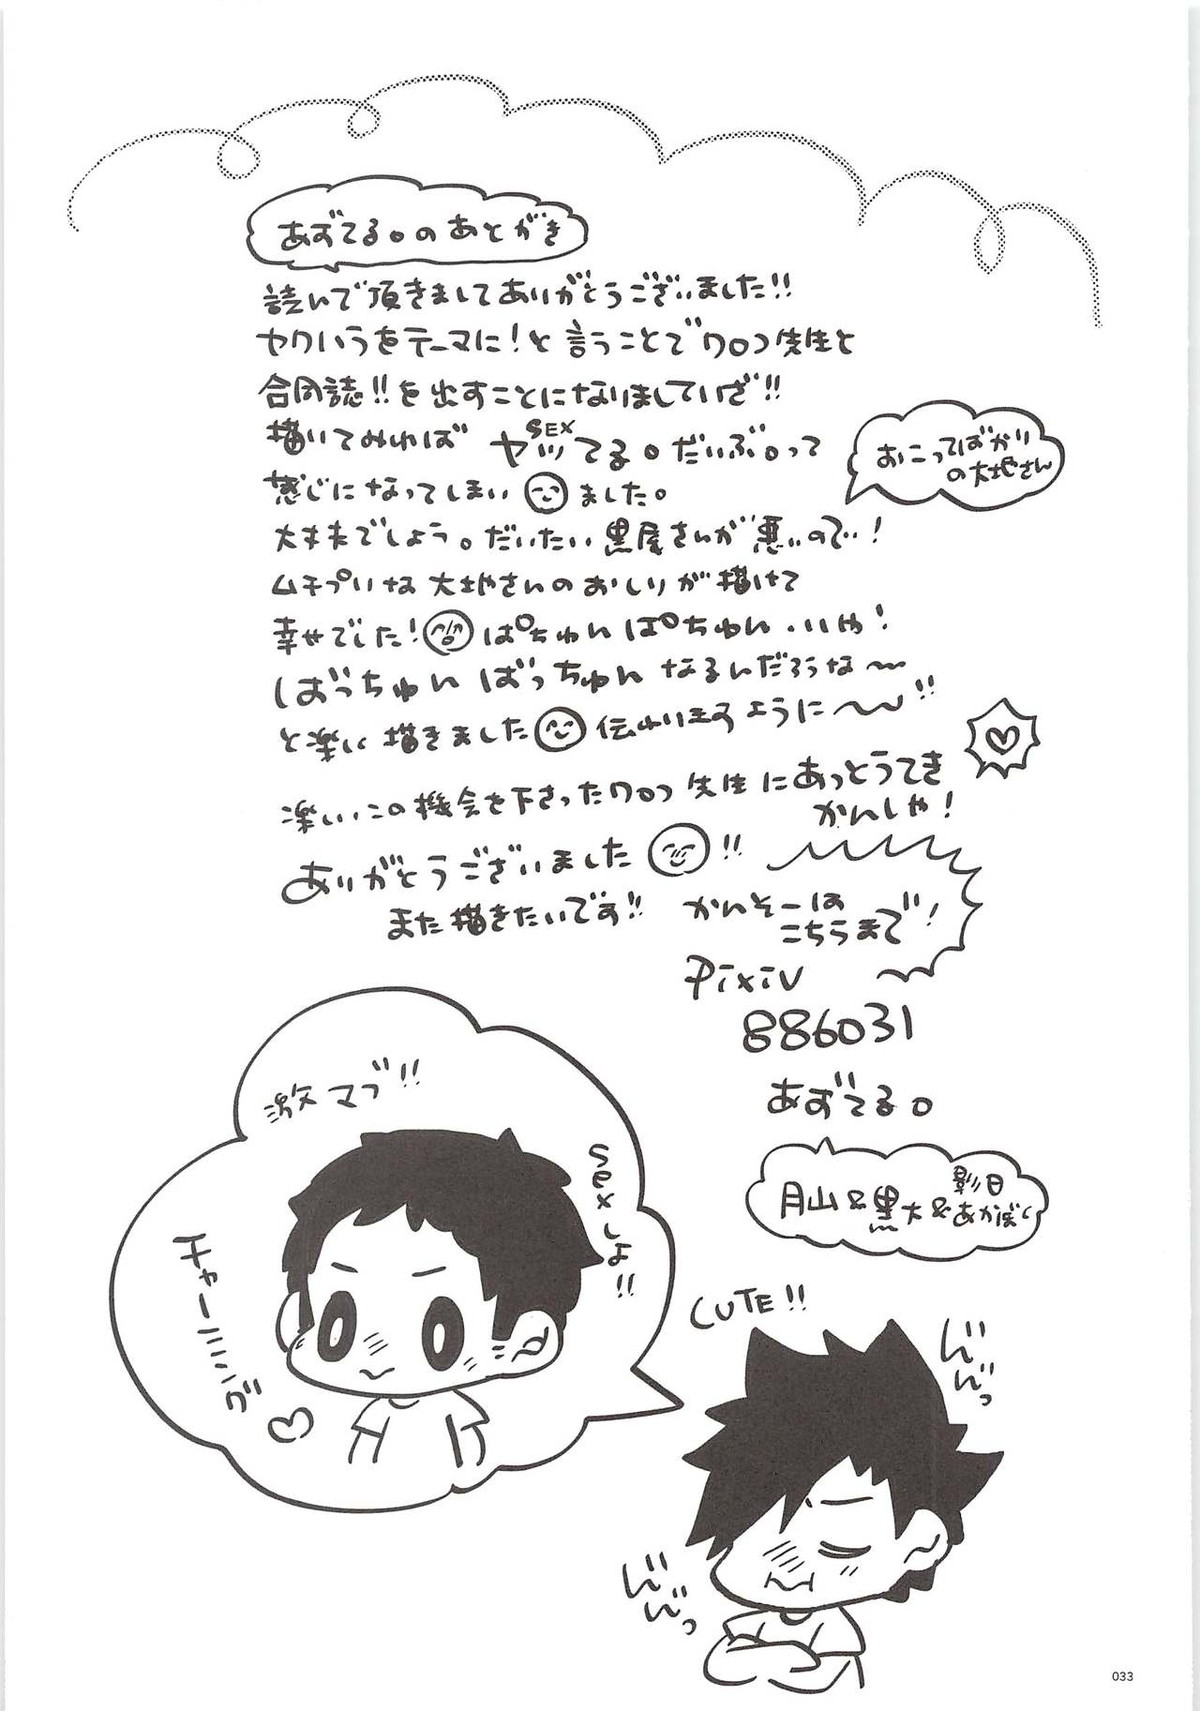 あずてる。のあとがき
読んで頂きましてありがとうございました!!
ヤクいうをテーマに!と言うことでワロフ先生と
合同誌!!を出すことになりまして
描いてみれば ヤッてる。だいぶ。って
SEX
感じになってしまいました。
おこってばかり
の大地さん
大丈夫でしょう。だいたい黒尾さんが悪いので!
ムチプリな大地さんのおしりが描けて
幸せでした! ぱちゅんぱちゅん・いや!
ばっちゅんばっちゅんなるんだろうな〜
と楽しく描きました 伝わりますように〜!!
楽しいこの機会を下さったワロフ先生にあっとうてき
かんしゃ!
ありがとうございました!!
また描きたいです!!
かんそーは
こちらまで!
Pixiv
886031
あずてる。
月山&黒大&影日
あかぼく
激マブ!!
sexしよ!!
チャーミング♡
CUTE!!
んんっ
んんっ
033